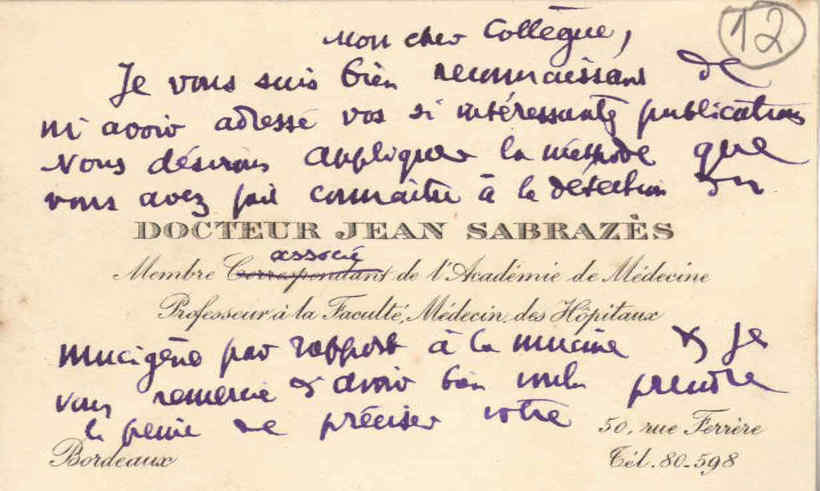 12
Mon cher Collègue,
Je vous suis bien reconnaissant de
m'avoir adressé vos si intéressantes publications
Nous désirons appliquer la méthode que
vous avez fait connaître à la détection du
DOCTEUR JEAN SABRAZÈS
associé
Membre Correspondant de l'Académie de Médecine
Professeur à la Faculté, Médecin des Hôpitaux
mucigène par rapport à la mucine & je
vous remercie d'avoir bien voulu prendre
la peine de préciser votre
50, rue Ferrère
Bordeaux
Tél. 80-598